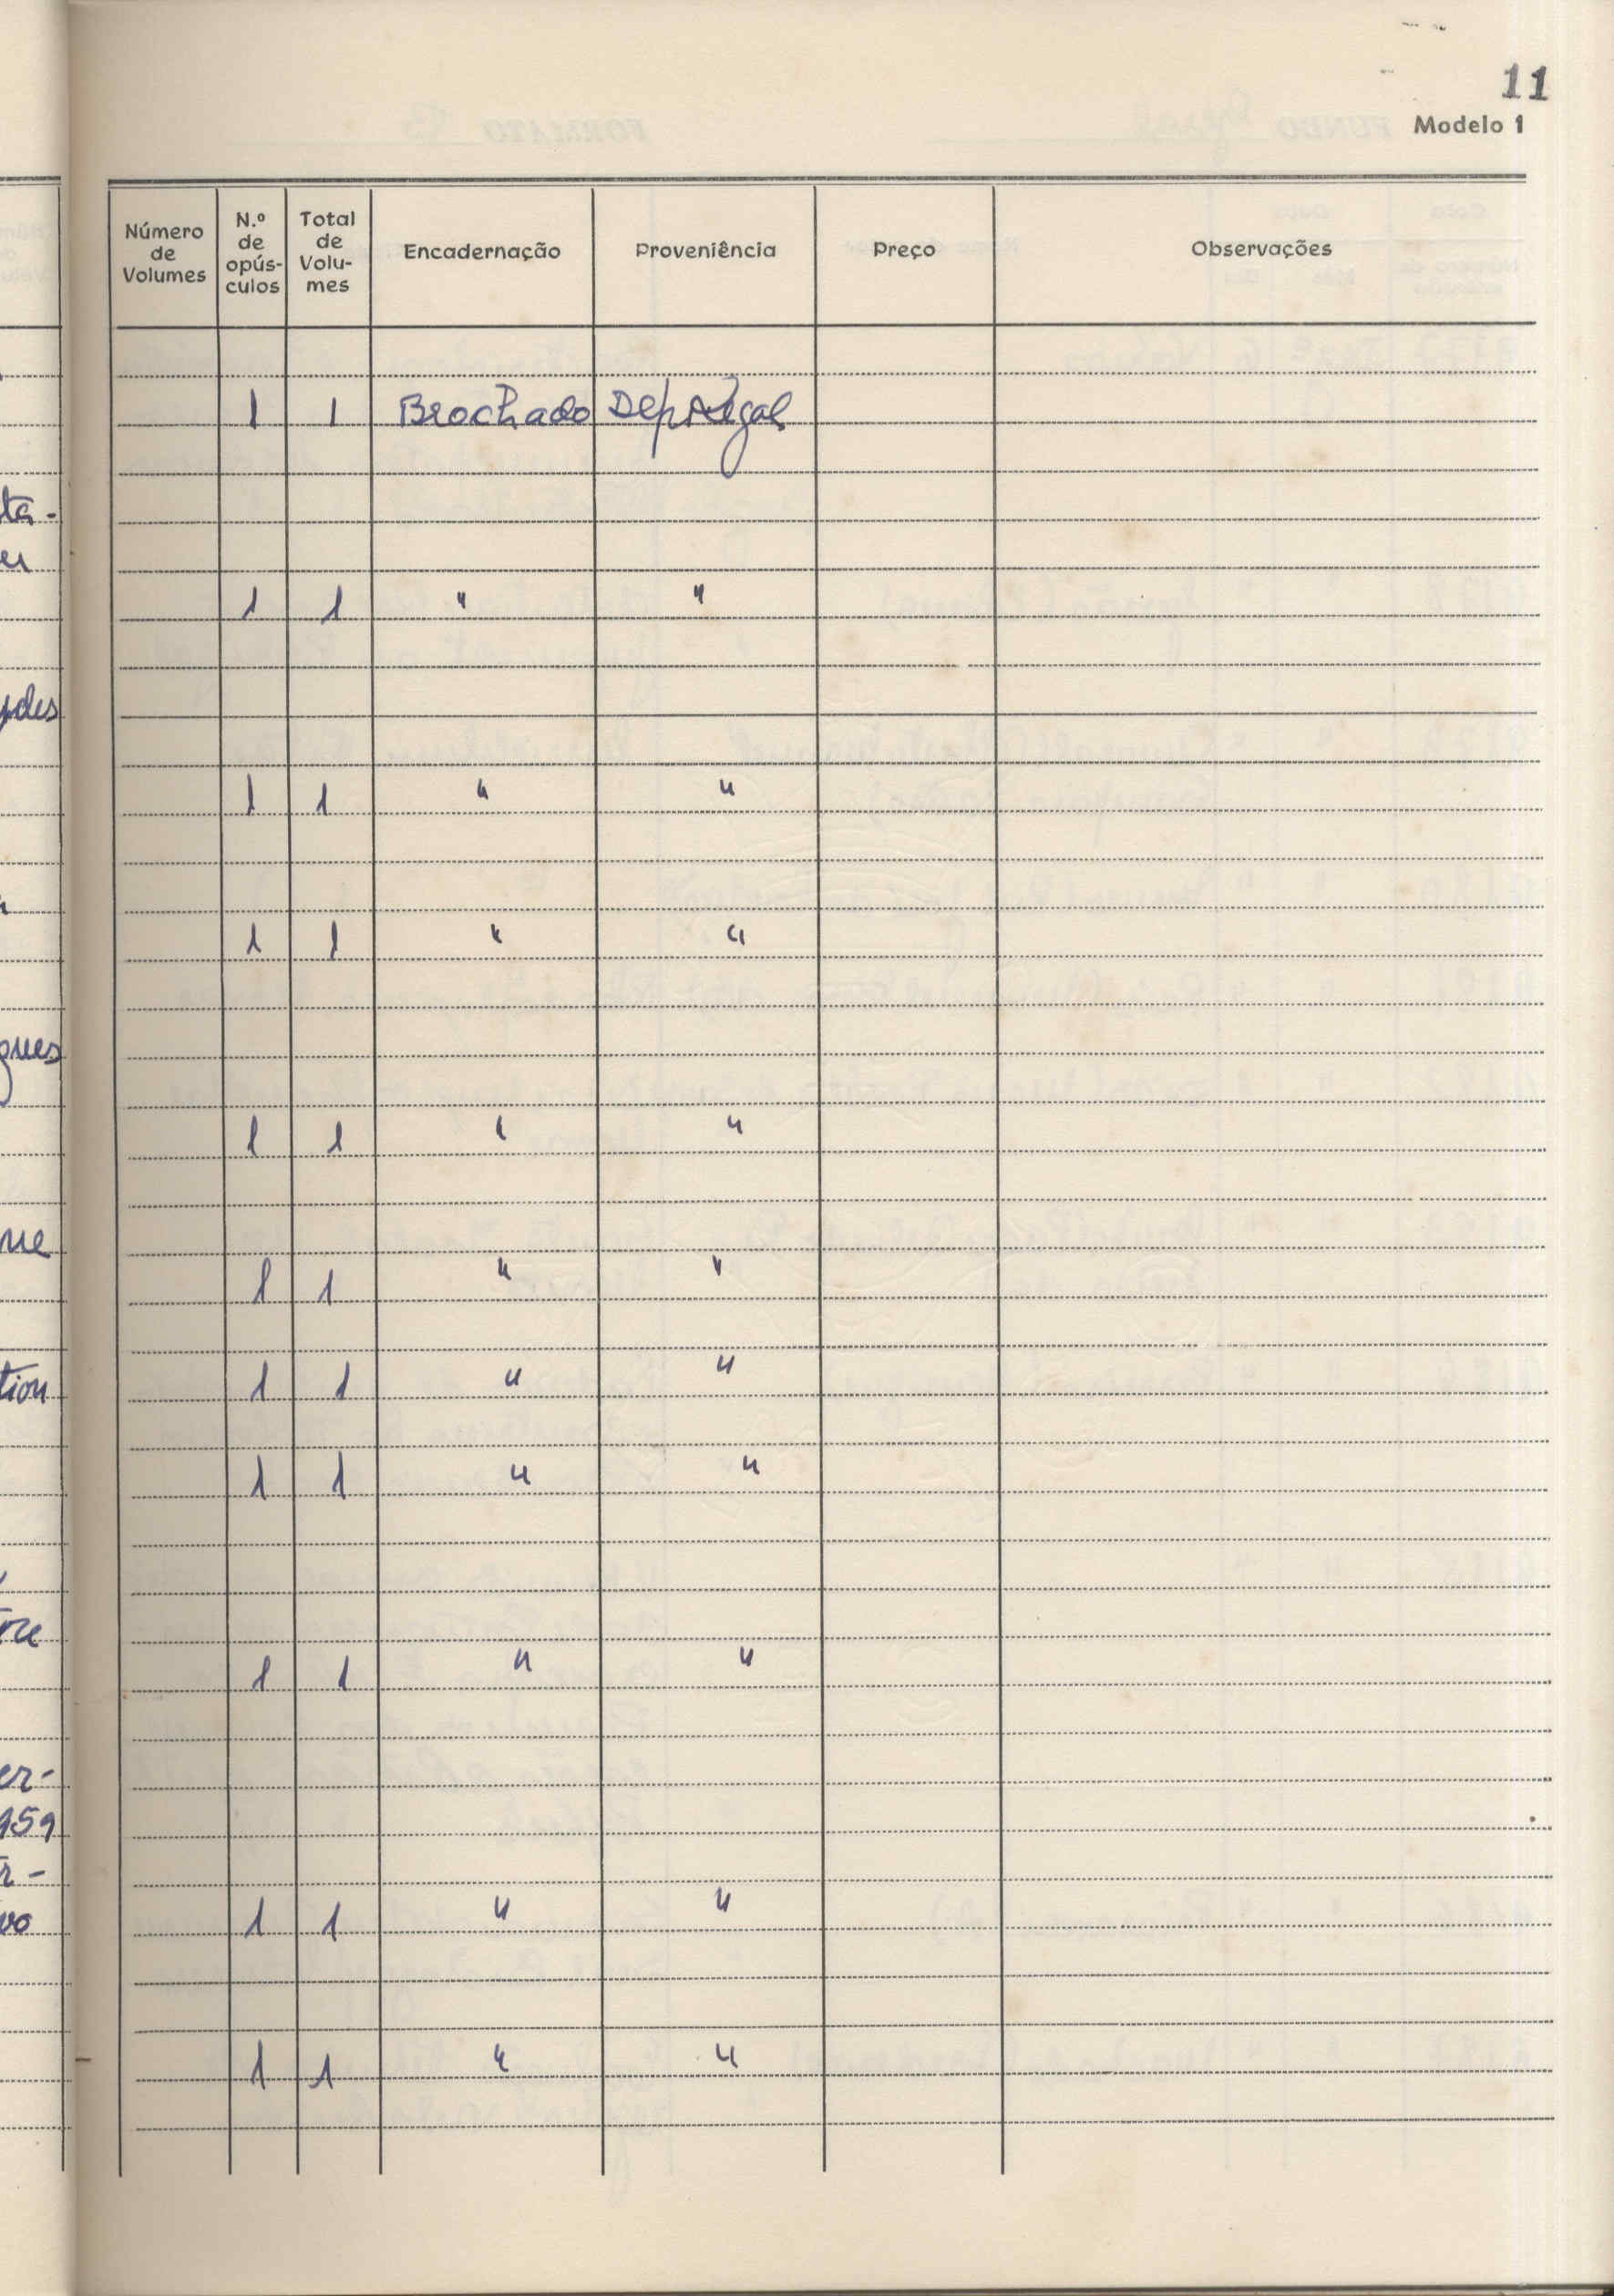 11
Modelo 1
Número de Volumes | N.º de opús-culos | Total de Volu-mes | Encadernação | Proveniência | Preço | Observações
1 | 1 | Brochado | Dep Legal
ta-
er
1 | 1 | " | "
pdes
1 | 1 | " | "
1 | 1 | " | "
gues
1 | 1 | " | "
que
1 | 1 | " | "
tion 1 | 1 | " | "
1 | 1 | " | "
1 | 1 | " | "
er-
959
r-
vo 1 | 1 | " | "
1 | 1 | " | "